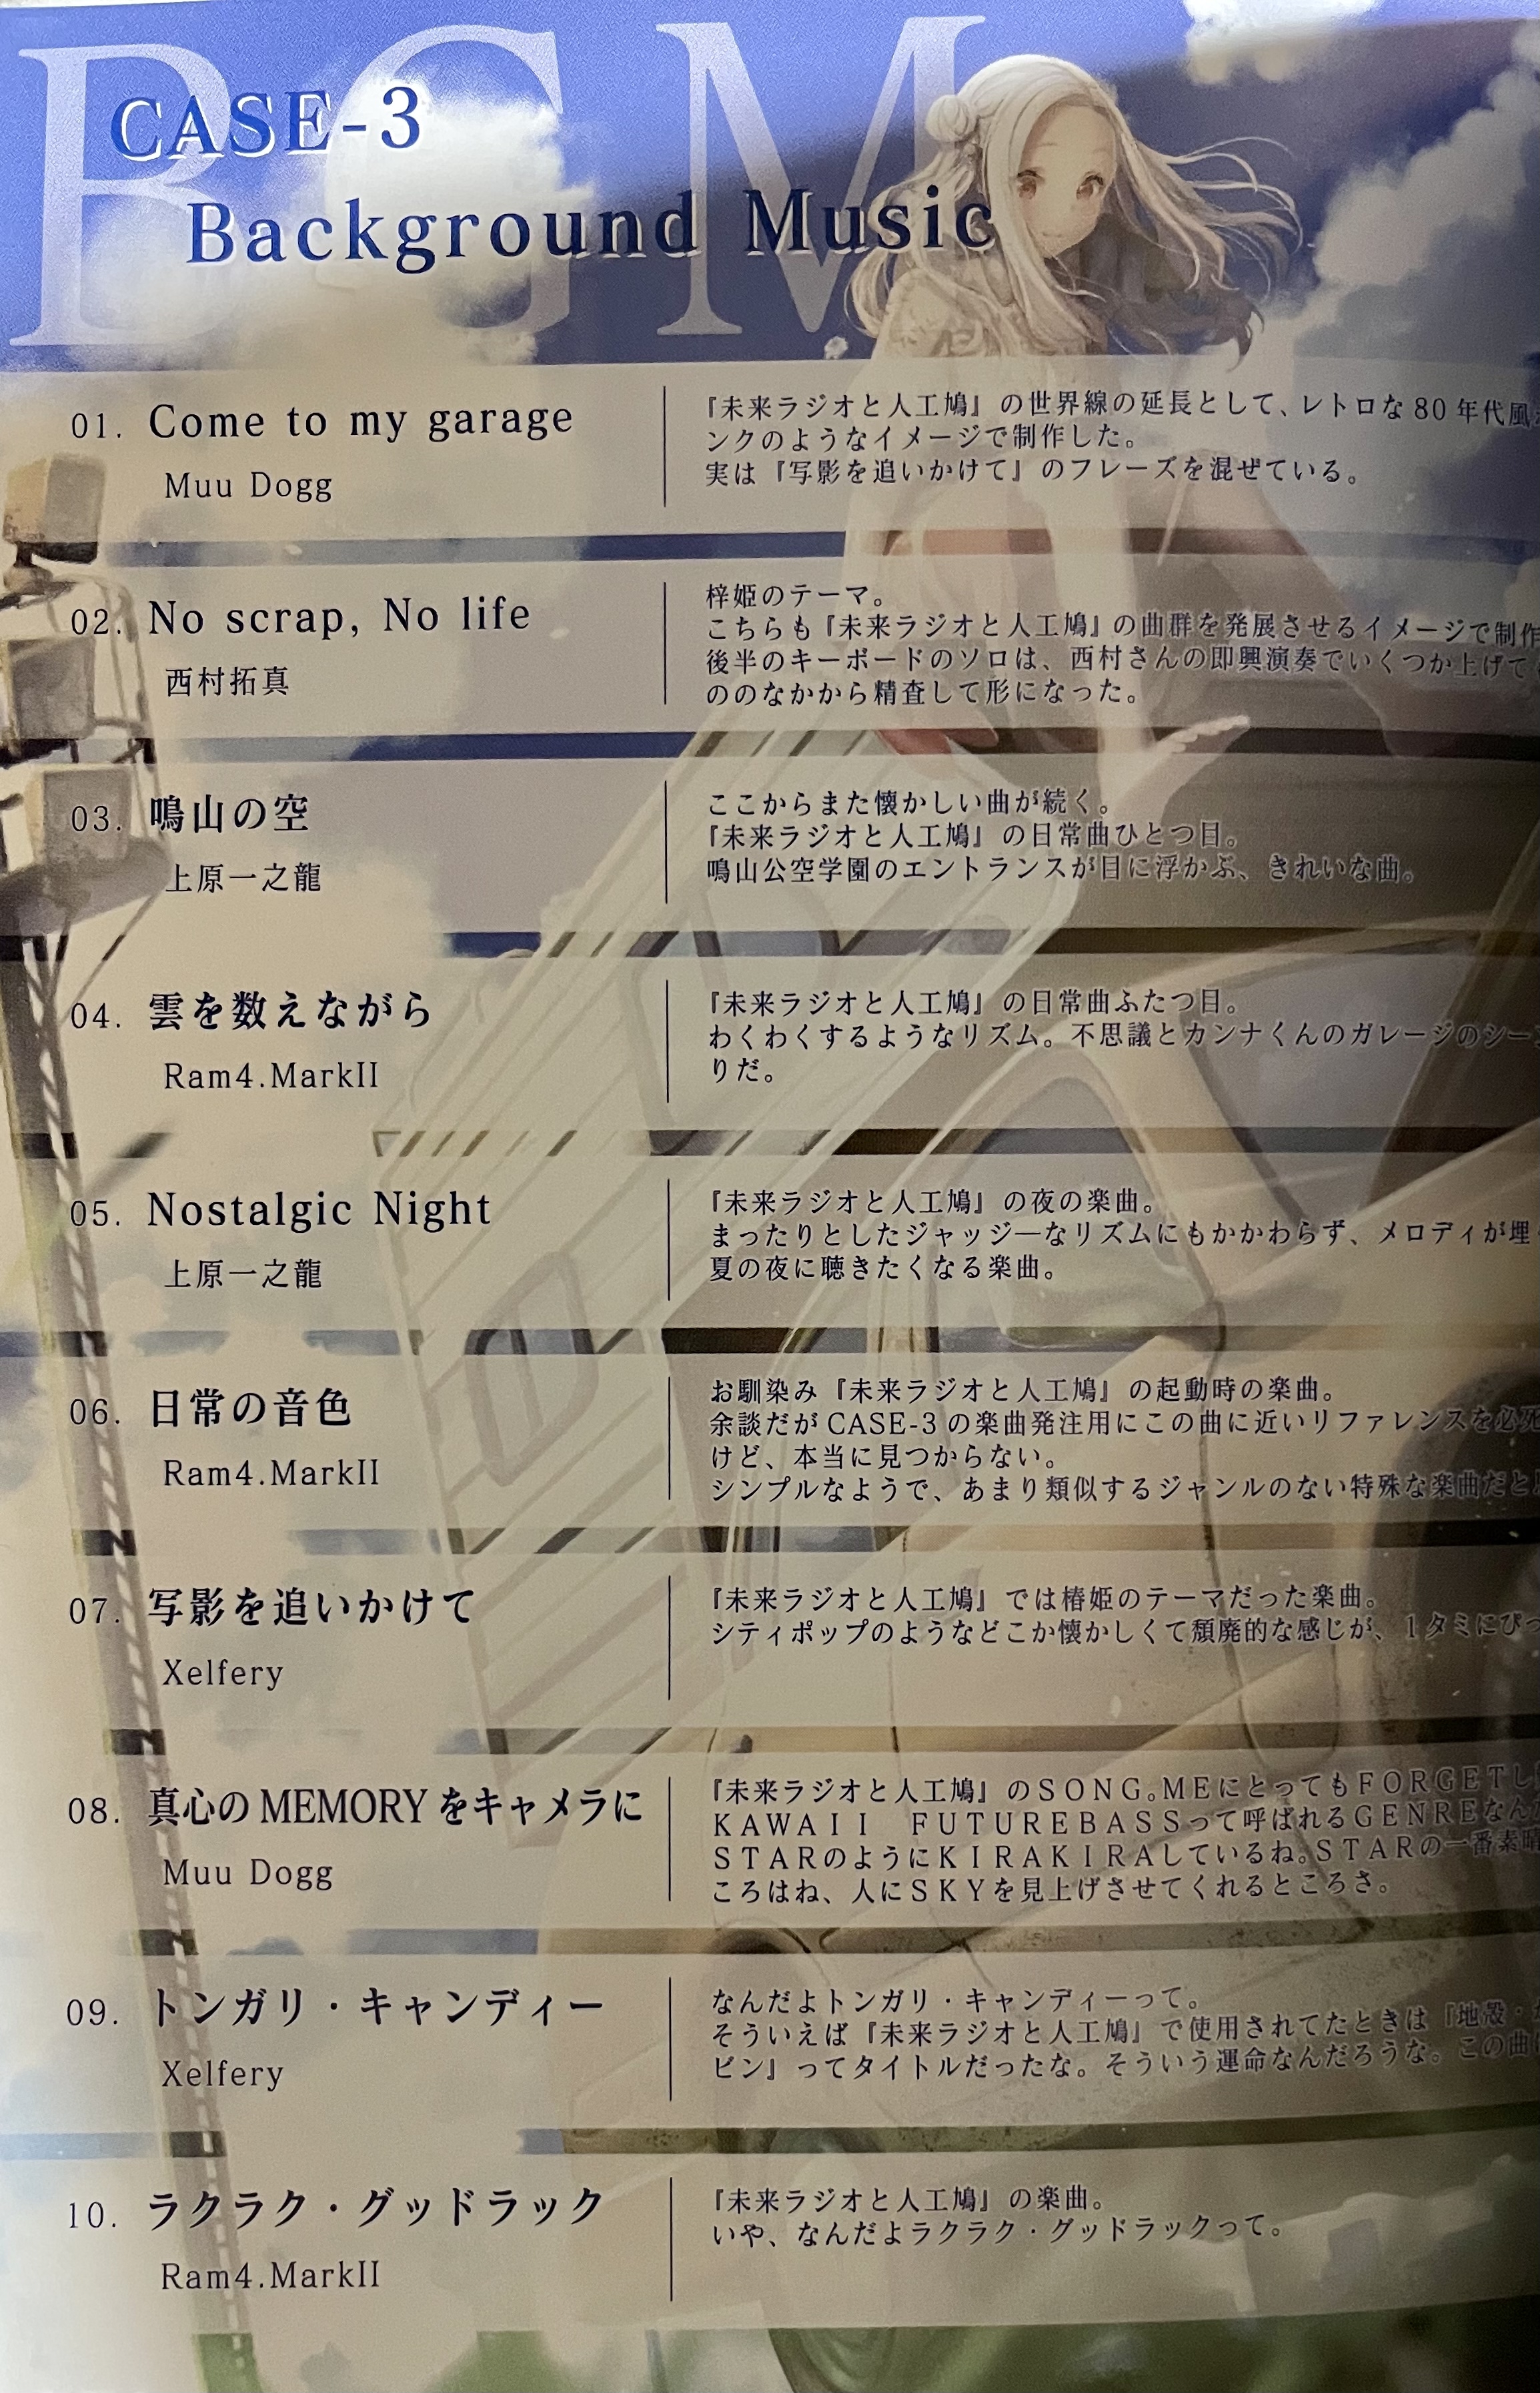 BGM
CASE-3
Background Music
01. Come to my garage
Muu Dogg
『未来ラジオと人工鳩』の世界線の延長として、レトロな80年代風
ンクのようなイメージで制作した。
実は『写影を追いかけて』のフレーズを混ぜている。
02. No scrap, No life
西村拓真
梓姫のテーマ。
こちらも『未来ラジオと人工鳩』の曲群を発展させるイメージで制作
後半のキーボードのソロは、西村さんの即興演奏でいくつか上げて
ののなかから精査して形になった。
03. 鳴山の空
上原一之龍
ここからまた懐かしい曲が続く。
『未来ラジオと人工鳩』の日常曲ひとつ目。
鳴山公空学園のエントランスが目に浮かぶ、きれいな曲。
04. 雲を数えながら
Ram4.MarkII
『未来ラジオと人工鳩』の日常曲ふたつ目。
わくわくするようなリズム。不思議とカンナくんのガレージのシー
りだ。
05. Nostalgic Night
上原一之龍
『未来ラジオと人工鳩』の夜の楽曲。
まったりとしたジャッジーなリズムにもかかわらず、メロディが埋
夏の夜に聴きたくなる楽曲。
06. 日常の音色
Ram4.MarkII
お馴染み『未来ラジオと人工鳩』の起動時の楽曲。
余談だがCASE-3の楽曲発注用にこの曲に近いリファレンスを必死
けど、本当に見つからない。
シンプルなようで、あまり類似するジャンルのない特殊な楽曲だと
07. 写影を追いかけて
Xelfery
『未来ラジオと人工鳩』では椿姫のテーマだった楽曲。
シティポップのようなどこか懐かしくて頽廃的な感じが、1タミにぴっ
08. 真心のMEMORYをキャメラに
Muu Dogg
『未来ラジオと人工鳩』のＳＯＮＧ。ＭＥにとってもＦＯＲＧＥＴし
ＫＡＷＡＩＩ　ＦＵＴＵＲＥＢＡＳＳって呼ばれるＧＥＮＲＥなん
ＳＴＡＲのようにＫＩＲＡＫＩＲＡしているね。ＳＴＡＲの一番素晴
ころはね、人にＳＫＹを見上げさせてくれるところさ。
09. トンガリ・キャンディー
Xelfery
なんだよトンガリ・キャンディーって。
そういえば『未来ラジオと人工鳩』で使用されてたときは『地殻・
ビン』ってタイトルだったな。そういう運命なんだろうな。この曲
10. ラクラク・グッドラック
Ram4.MarkII
『未来ラジオと人工鳩』の楽曲。
いや、なんだよラクラク・グッドラックって。